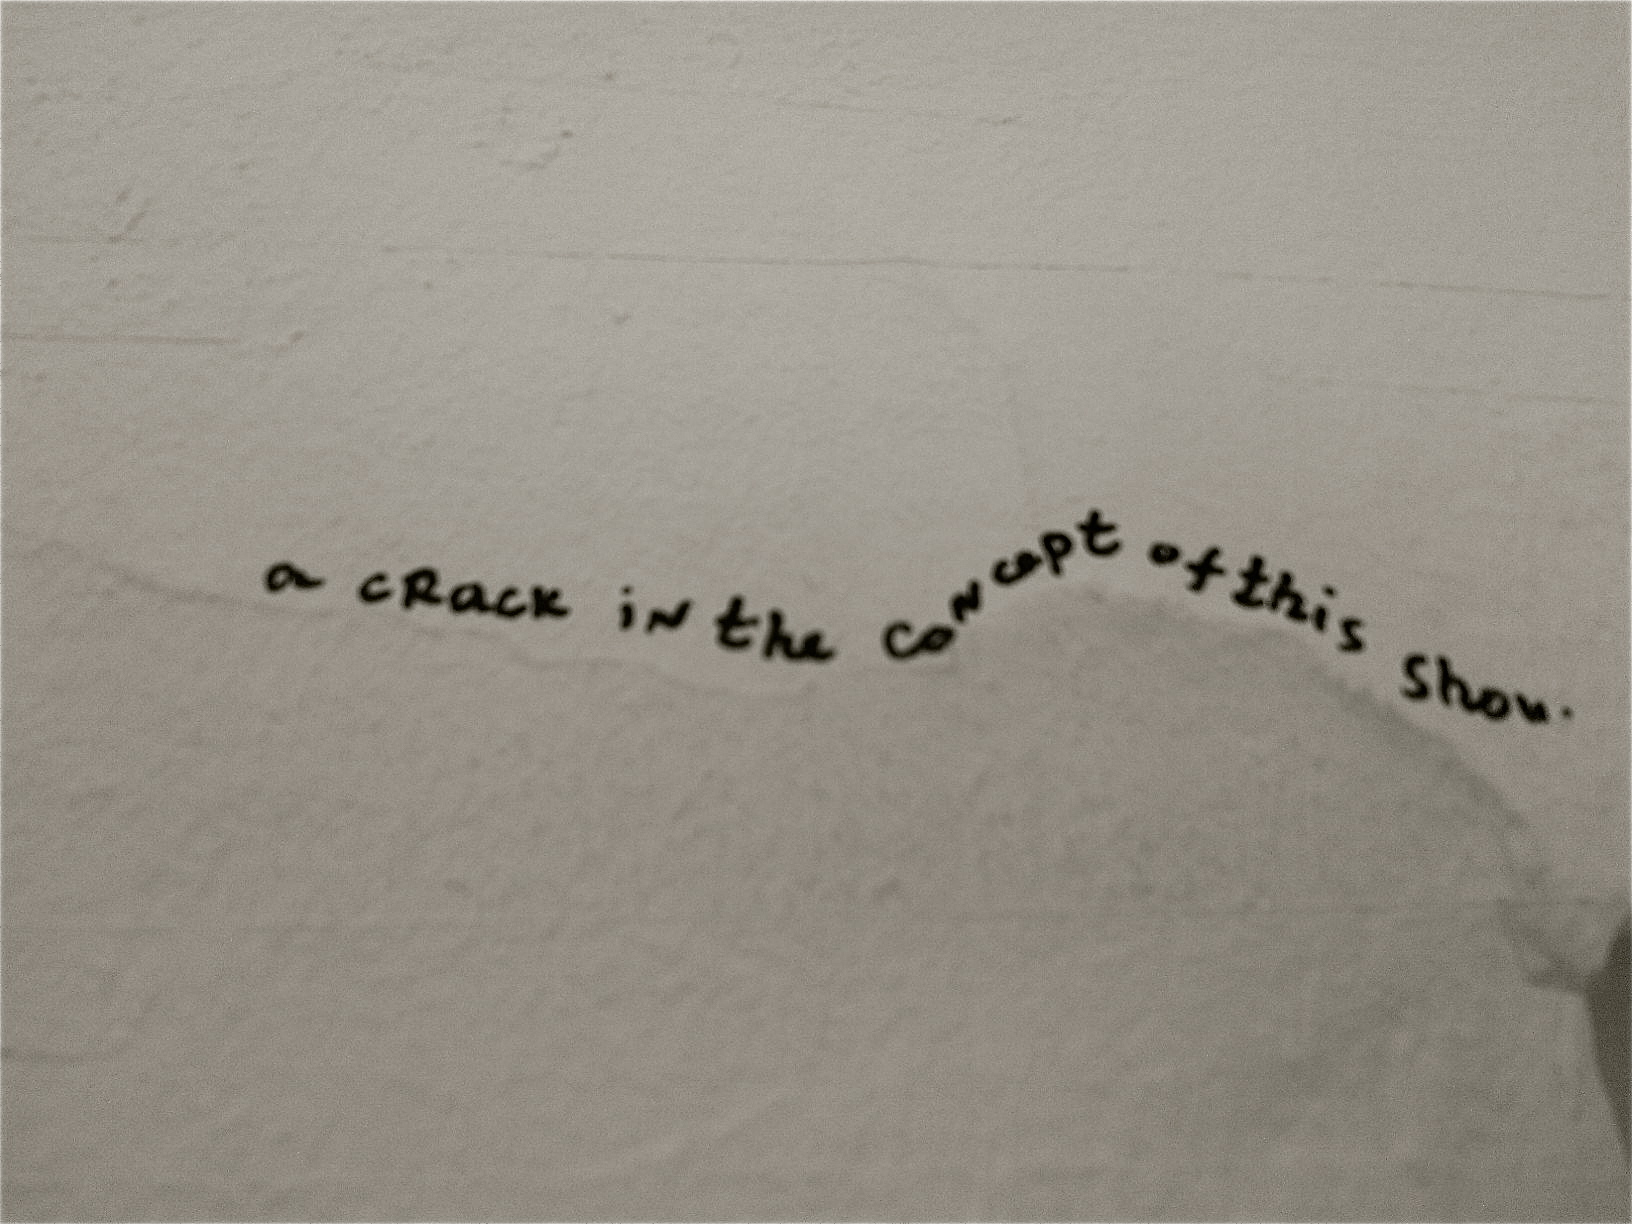 a crack in the concept of this show.